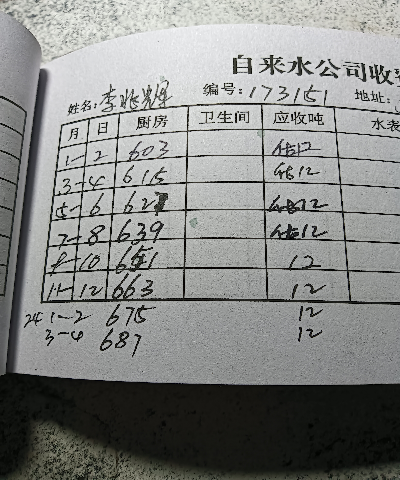 自来水公司收
姓名:李兆辉 编号:173151 地址:
月 日 厨房 卫生间 应收吨 水表
1-2 603 估12
3-4 615 估12
5-6 627 估12
7-8 639 估12
9-10 651 12
11-12 663 12
24 1-2 675 12
3-4 687 12